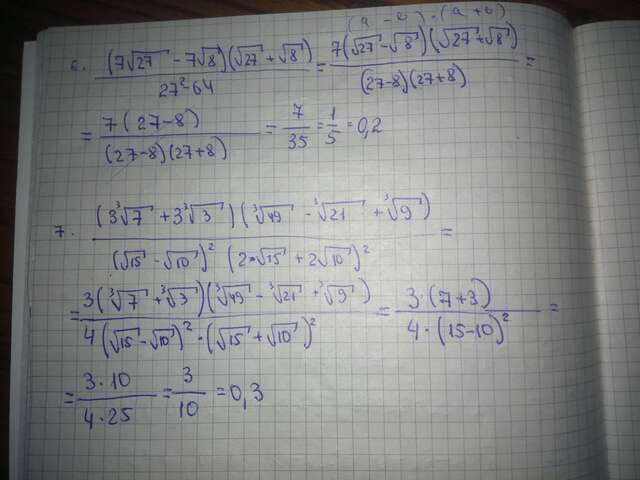 (a - в) · (a + в)
6. (7√27 - 7√8)(√27 + √8) / 27² - 64 = 7(√27 - √8)(√27 + √8) / (27-8)(27+8) =
= 7(27-8) / (27-8)(27+8) = 7/35 = 1/5 = 0,2
7. (3∛7 + 3∛3)(∛49 - ∛21 + ∛9) / (√15 - √10)² (2√15 + 2√10)² =
= 3(∛7 + ∛3)(∛49 - ∛21 + ∛9) / 4(√15 - √10)² · (√15 + √10)² = 3·(7+3) / 4·(15-10)² =
= 3·10 / 4·25 = 3/10 = 0,3